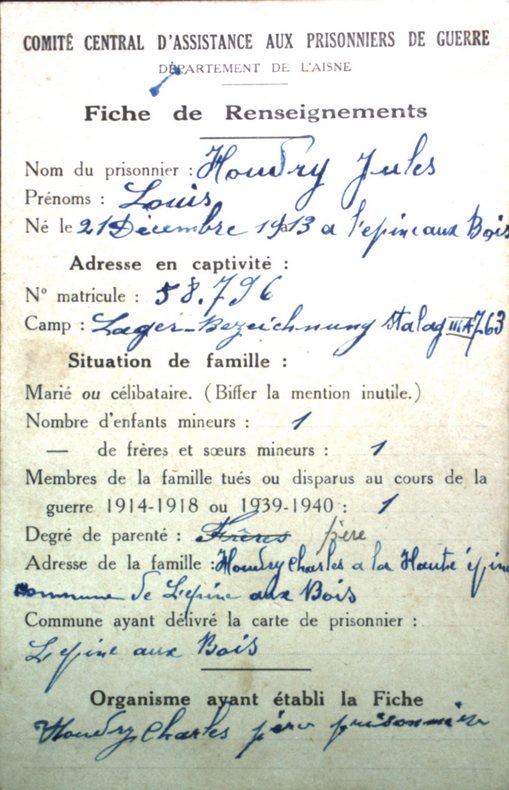 COMITÉ CENTRAL D'ASSISTANCE AUX PRISONNIERS DE GUERRE
DÉPARTEMENT DE L'AISNE
Fiche de Renseignements
Nom du prisonnier : Houdry Jules
Prénoms : Louis
Né le 21 Décembre 1913 a l'epine aux Bois
Adresse en captivité :
N° matricule : 58.796
Camp : Lager-Bezeichnung Stalag III A 763
Situation de famille :
Marié ou célibataire. (Biffer la mention inutile.)
Nombre d'enfants mineurs : 1
— de frères et sœurs mineurs : 1
Membres de la famille tués ou disparus au cours de la
guerre 1914-1918 ou 1939-1940 : 1
Degré de parenté : Frères père
Adresse de la famille : Houdry Charles a la Haute épine
commune de L'epine aux Bois
Commune ayant délivré la carte de prisonnier :
L'epine aux Bois
Organisme ayant établi la Fiche
Houdry Charles père prisonnier